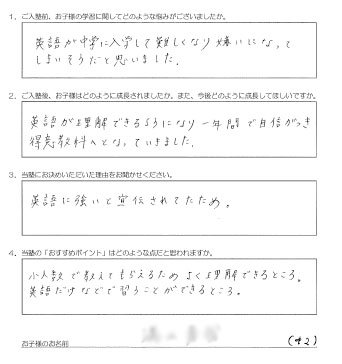 1．ご入塾前、お子様の学習に関してどのような悩みがございましたか。
英語が中学に入学して難しくなり嫌いになって
しまいそうだと思いました。
2．ご入塾後、お子様はどのように成長されましたか。また、今後どのように成長してほしいですか。
英語が理解できるようになり一年間で自信がつき
得意教科へとなっていきました。
3．当塾にお決めいただいた理由をお聞かせください。
英語に強いと宣伝されてたため。
4．当塾の「おすすめポイント」はどのような点だと思われますか。
小人数で教えてもらえるためよく理解できるところ。
英語だけなどで習うことができるところ。
お子様のお名前
(中2)